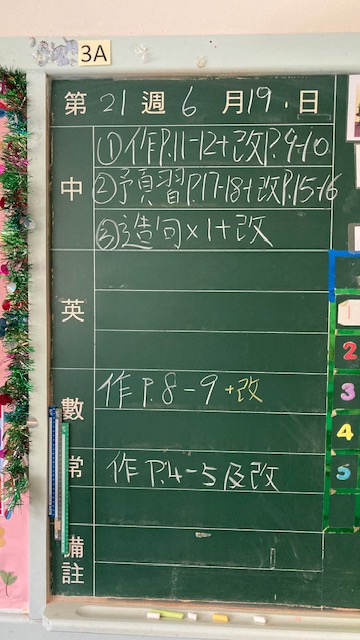 3A
第 21 週 6 月 19 日
中
①作P.11-12+改P.9-10
②預習P.17-18+改P.15-16
③造句×1+改
英
數
作 P.8-9+改
常
作 P.4-5及改
備註
2
3
4
5